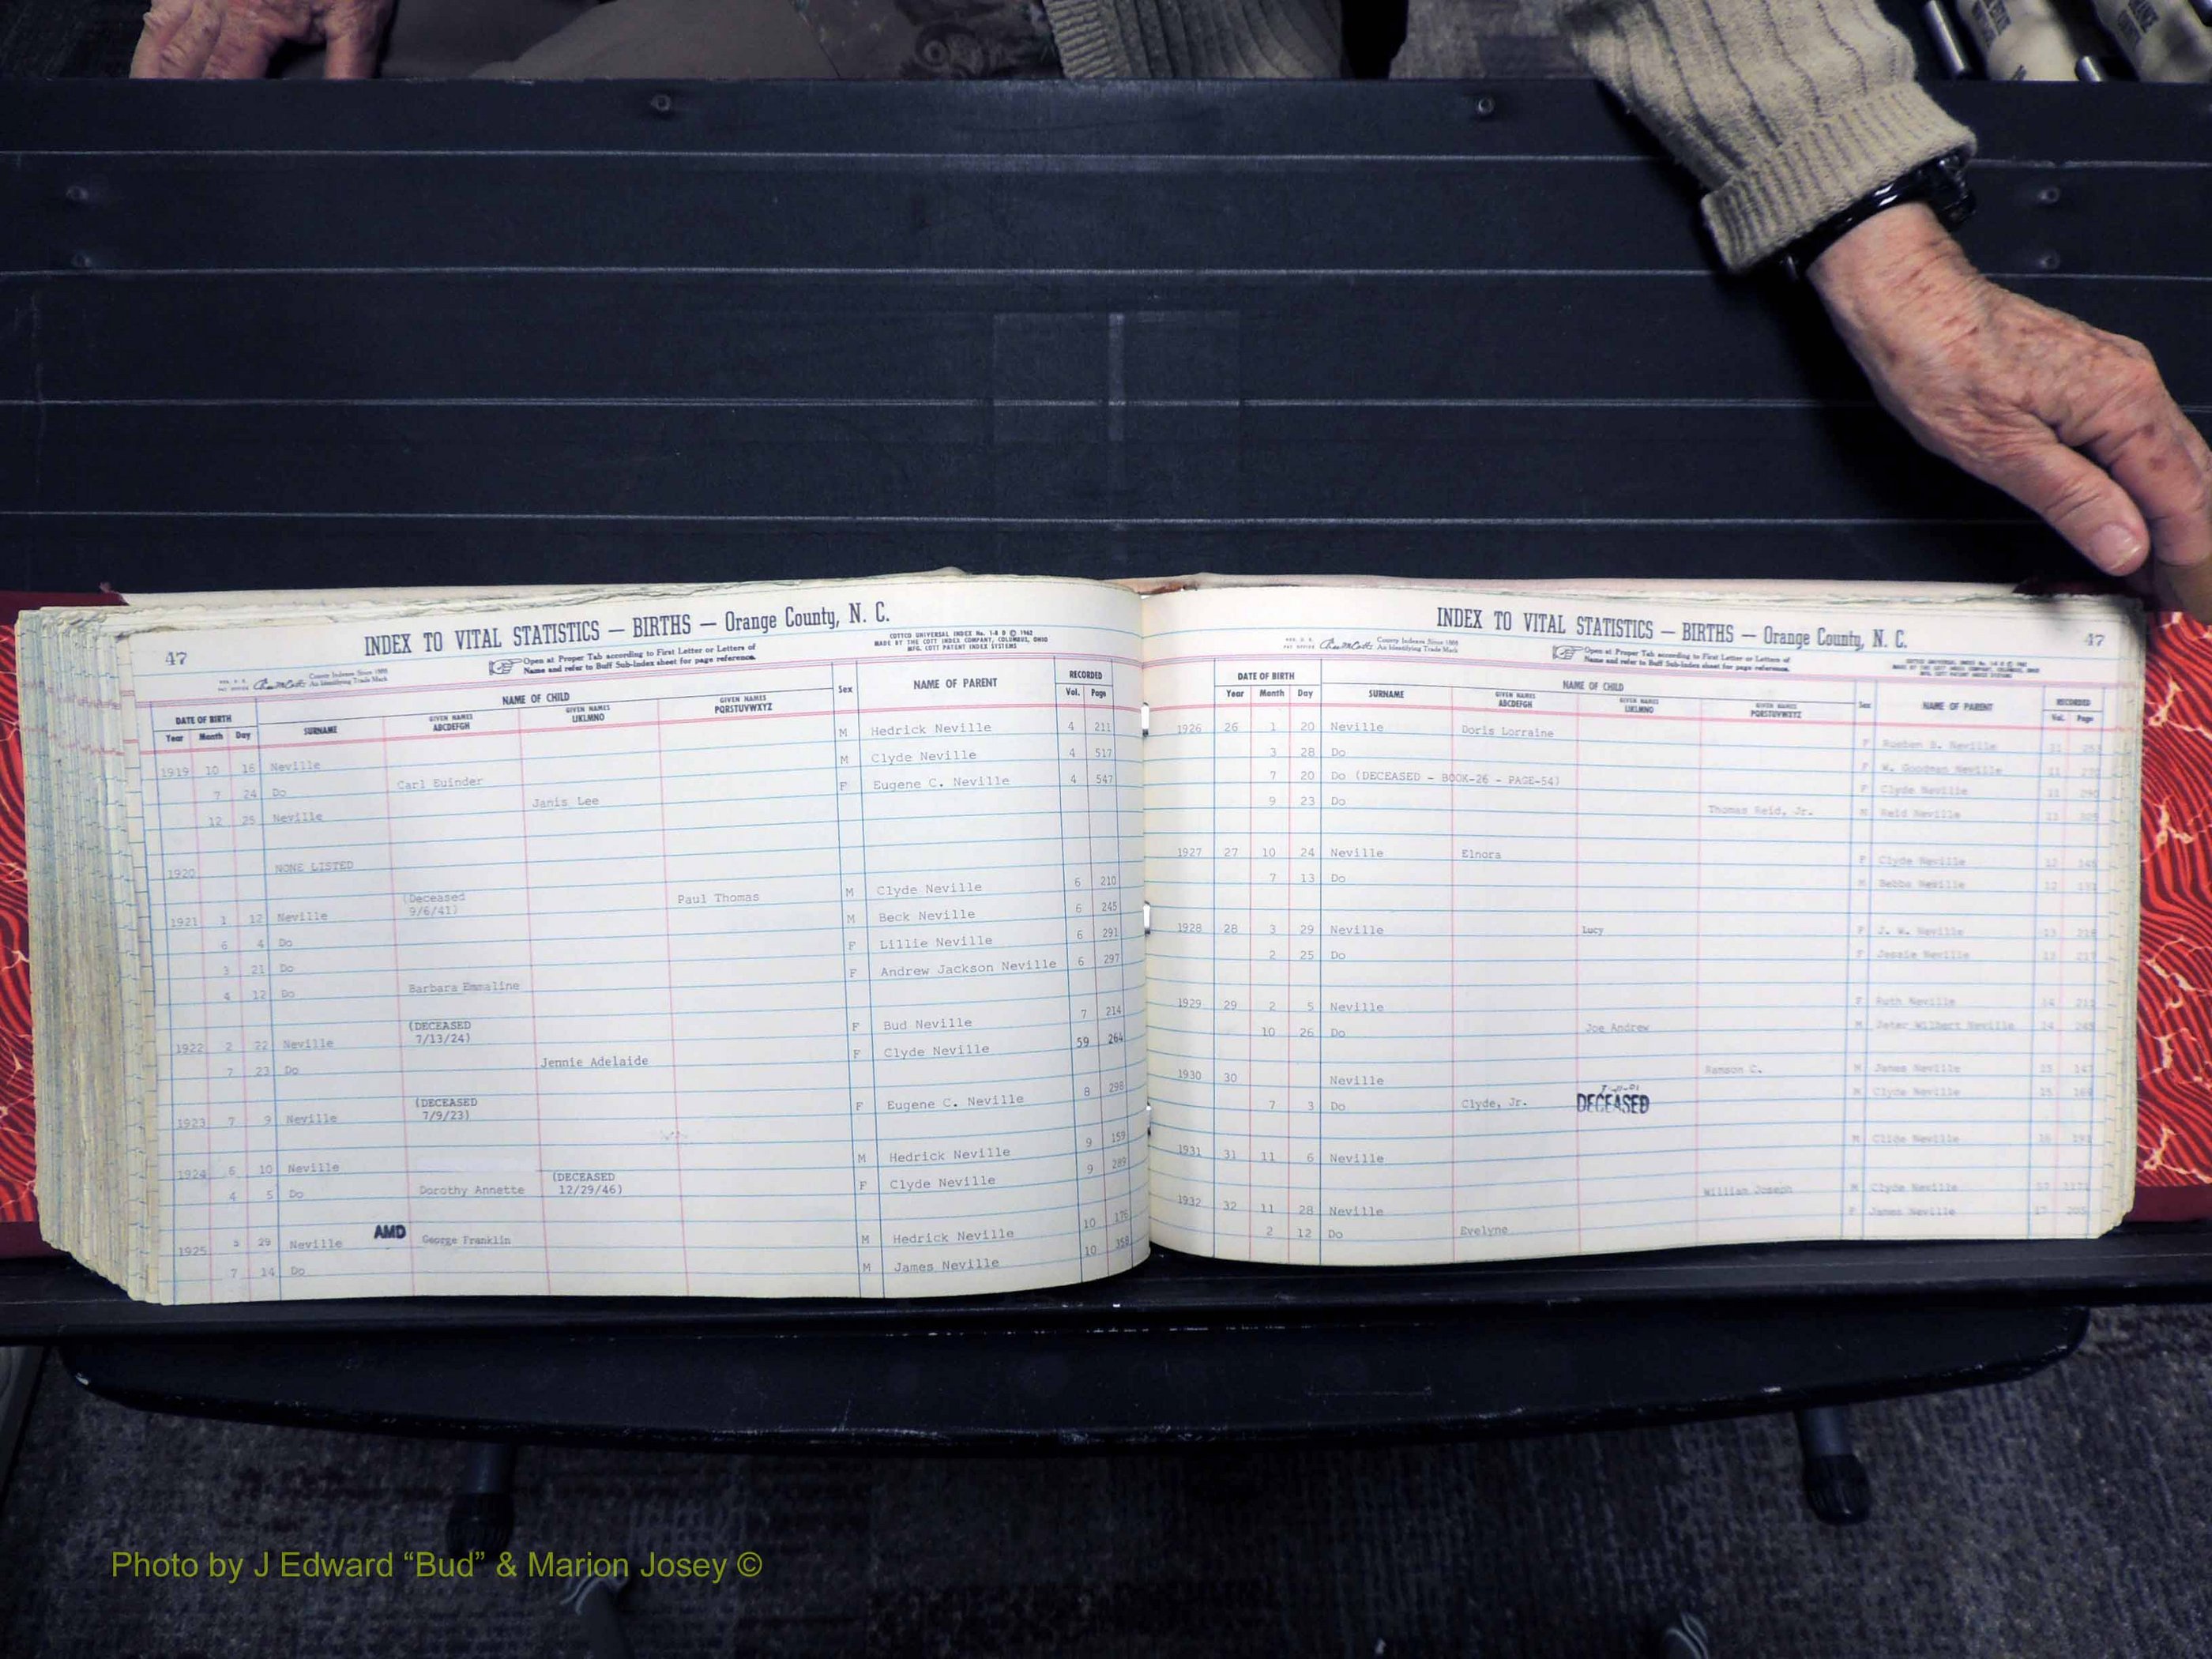 47
INDEX TO VITAL STATISTICS — BIRTHS — Orange County, N. C.
County Indexes Since 1888
An Identifying Trade Mark
Open at Proper Tab according to First Letter or Letters of
Name and refer to Buff Sub-Index sheet for page reference.
COTTCO UNIVERSAL INDEX No. 1-8 D © 1962
MADE BY THE COTT INDEX COMPANY, COLUMBUS, OHIO
MFG. COTT PATENT INDEX SYSTEMS
DATE OF BIRTH NAME OF CHILD Sex NAME OF PARENT RECORDED
Year Month Day SURNAME GIVEN NAMES ABCDEFGH GIVEN NAMES IJKLMNO GIVEN NAMES PQRSTUVWXYZ Vol. Page
1919 10 16 Neville M Hedrick Neville 4 211
7 24 Do Carl Euinder M Clyde Neville 4 517
12 25 Neville Janis Lee F Eugene C. Neville 4 547
1920 NONE LISTED
1921 1 12 Neville (Deceased 9/6/41) Paul Thomas M Clyde Neville 6 210
6 4 Do M Beck Neville 6 245
3 21 Do F Lillie Neville 6 291
4 12 Do Barbara Emmaline F Andrew Jackson Neville 6 297
1922 2 22 Neville (DECEASED 7/13/24) F Bud Neville 7 214
7 23 Do Jennie Adelaide F Clyde Neville 59 264
1923 7 9 Neville (DECEASED 7/9/23) F Eugene C. Neville 8 298
1924 6 10 Neville M Hedrick Neville 9 159
4 5 Do Dorothy Annette (DECEASED 12/29/46) F Clyde Neville 9 289
1925 29 Neville AMD George Franklin M Hedrick Neville 10 176
7 14 Do M James Neville 10 358
INDEX TO VITAL STATISTICS — BIRTHS — Orange County, N. C.
47
County Indexes Since 1888
An Identifying Trade Mark
Open at Proper Tab according to First Letter or Letters of
Name and refer to Buff Sub-Index sheet for page reference.
DATE OF BIRTH NAME OF CHILD Sex NAME OF PARENT RECORDED
Year Month Day SURNAME GIVEN NAMES ABCDEFGH GIVEN NAMES IJKLMNO GIVEN NAMES PQRSTUVWXYZ Vol. Page
1926 26 1 20 Neville Doris Lorraine F Neville 11
3 28 Do F W. Goodman Neville 11
7 20 Do (DECEASED - BOOK-26 - PAGE-54) F Clyde Neville 11
9 23 Do Thomas Reid, Jr. M Reid Neville 11
1927 27 10 24 Neville Elnora F Clyde Neville 12
7 13 Do M Neville 12
1928 28 3 29 Neville Lucy F J. W. Neville 13
2 25 Do F Jessie Neville 13
1929 29 2 5 Neville F Ruth Neville 14
10 26 Do Joe Andrew M Jeter Wilbert Neville 14
1930 30 Neville Ranson C. M James Neville 15
7 3 Do Clyde, Jr. DECEASED M Clyde Neville 15
1931 31 11 6 Neville M Clide Neville 16
1932 32 11 28 Neville William Joseph M Clyde Neville
2 12 Do Evelyne F James Neville 17
Photo by J Edward “Bud” & Marion Josey ©